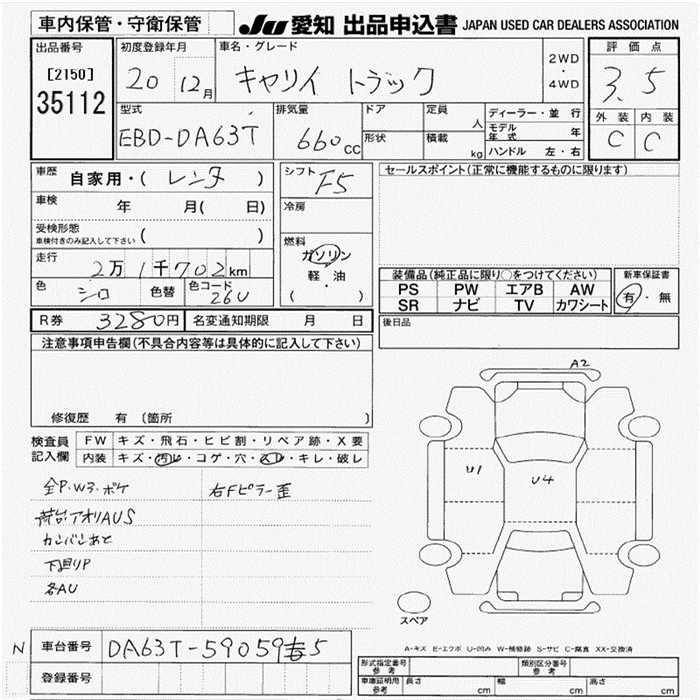 車内保管・守衛保管
JU 愛知 出品申込書 JAPAN USED CAR DEALERS ASSOCIATION
出品番号
[2150]
35112
初度登録年月
20 12月
車名・グレード
キャリイ トラック
2WD
・
4WD
評価点
3.5
外装 内装
C C
型式
EBD-DA63T
排気量
660cc
ドア
形状
定員
人
積載
kg
ディーラー・並行
モデル年式 年
ハンドル 左・右
車歴 自家用・( レンタ )
車検 年 月( 日)
受検形態
車検付きのみ記入して下さい ( )
走行 2万1千702km
色 シロ 色替 色コード 26U
シフト F5
冷房
燃料
ガソリン
軽・油
( )
セールスポイント(正常に機能するものに限ります)
装備品(純正品に限り○をつけてください)
PS PW エアB AW
SR ナビ TV カワシート
新車保証書
有・無
R券 3280円 名変通知期限 月 日
後日品
注意事項申告欄(不具合内容等は具体的に記入して下さい)
修復歴 有 [箇所 ]
検査員記入欄
FW キズ・飛石・ヒビ割・リペア跡・X要
内装 キズ・汚れ・コゲ・穴・スレ・キレ・破レ
全P.Wラ.ボケ
右Fピラー歪
荷台アオリAUS
カンバンあと
下回りP
各AU
A2
U1
U4
スペア
A-キズ E-エクボ U-凹み W-補修跡 S-サビ C-腐食 XX-交換済
N
車台番号 DA63T-59059
5
登録番号
形式指定番号
参考
類別区分番号
参考
車庫証明用
参考
長さ cm 幅 cm 高さ cm